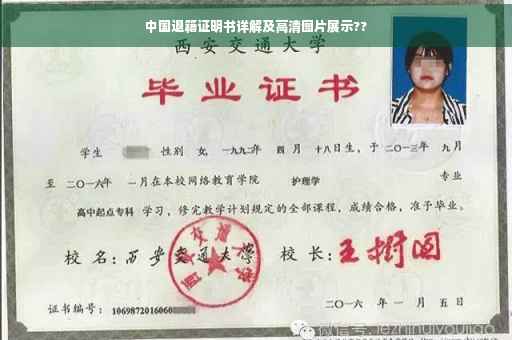 中国退籍证明书详解及高清图片展示??
西安交通大学
毕业证书
学生 性别 女, 一九九二年 四 月 十八日生, 于 二〇一三年 九月
至 二〇一六年 一月在本校网络教育学院 护理学 专业
高中起点专科 学习, 修完教学计划规定的全部课程, 成绩合格, 准予毕业。
校 名: 西安交通大学 校 长: 王树国
西安交通大学
证书编号: 1069872016060
二〇一六 年 一 月 五 日
微信号: jiezhihuiyoujiao